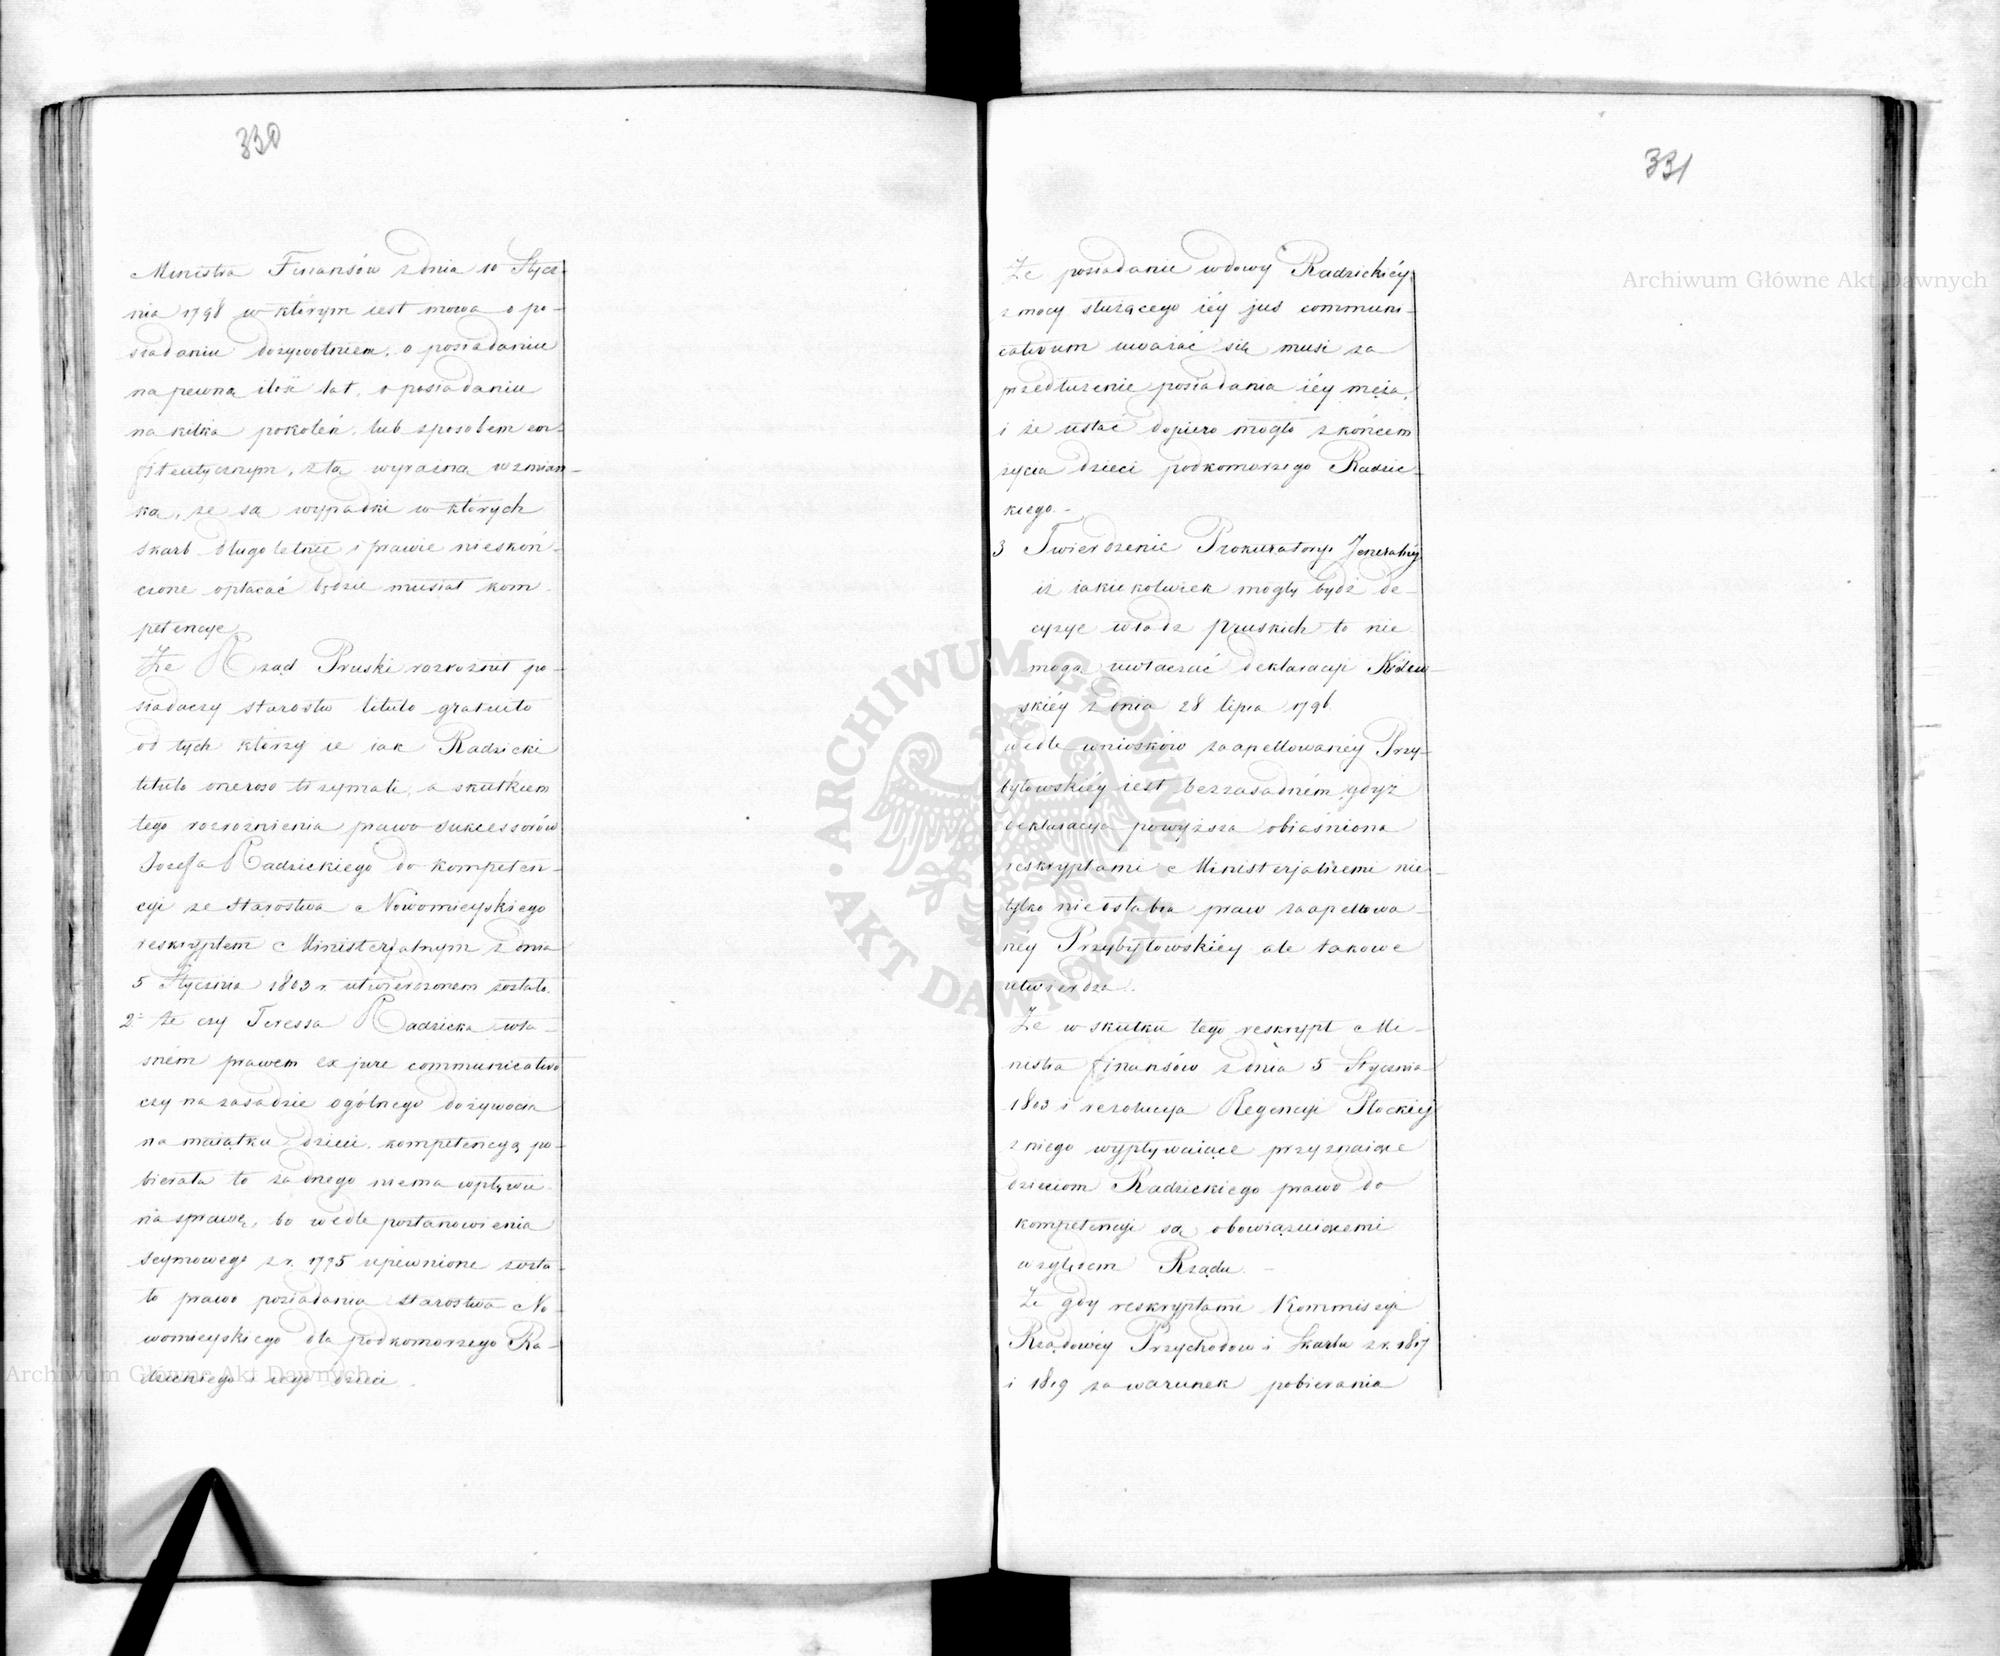 330
Ministra Finansów z dnia 10 Stycz-
nia 1798 w którym iest mowa o po-
siadaniu dożywotniem, o posiadaniu
na pewną ilość lat, o posiadaniu
na kilka pokoleń, lub sposobem em-
fiteutycznym, z tą wyraźną wzmian-
ką, że są wypadki w których
skarb długoletnie i prawie nieskoń-
czone opłacać będzie musiał kom-
petencye
Że Rząd Pruski rozróżnił po-
siadaczy starostw titulo gratuito
od tych którzy ie iak Radzicki
titulo oneroso trzymali, a skutkiem
tego rozróżnienia prawo sukcessorów
Jozefa Radzickiego do kompeten-
cyi ze starostwa Nowomieyskiego
reskryptem Ministerjalnym z dnia
5 Stycznia 1803 r. utwierdzonem zostało.
2° Że czy Teressa Radzicka wła-
sném prawem ex jure communicativo
czy na zasadzie ogólnego dożywocia
na maiątku dzieci, kompetencyą po-
bierała to żadnego niema wpływu
na sprawę, bo wedle postanowienia
seymowego z r. 1775 upewnione zosta-
ło prawo posiadania starostwa No-
womieyskiego dla podkomorzego Ra-
dzickiego i iego dzieci.
331
Że posiadanie wdowy Radzickiéy
z mocy służącego iéy jus communi-
cativum uważać się musi za
przedłużenie posiadania iéy męża,
i że ustać dopiero mogło z końcem
życia dzieci podkomorzego Radzic-
kiego.-
3 Twierdzenie Prokuratoryi Jeneralnéy
iż iakiekolwiek mogły bydź de-
cyzye władz pruskich to nie
mogą uwłaczać deklaracyi Królew-
skiéy z dnia 28 lipca 1796.
wedle wniosków zaapellowanéy Przy-
byłowskiéy iest bezzasadném gdyż
deklaracya powyższa obiaśniona
reskryptami Ministerjalnemi nie-
tylko nieosłabia praw zaapellowa-
néy Przybyłowskiéy ale takowe
utwierdza.
Że w skutku tego reskrypt Mi-
nistra finansów z dnia 5 Stycznia
1803 i rezolucya Regencyi Płockiéj
z niego wypływaiące przyznaiące
dzieciom Radzickiego prawo do
kompetencyi są obowiązuiącemi
względem Rządu. -
Że gdy reskryptami Kommissyi
Rządowéy Przychodów i Skarbu z r. 1817
i 1819 za warunek pobierania
Archiwum Główne Akt Dawnych
Archiwum Główne Akt Dawnych
ARCHIWUM GŁÓWNE AKT DAWNYCH